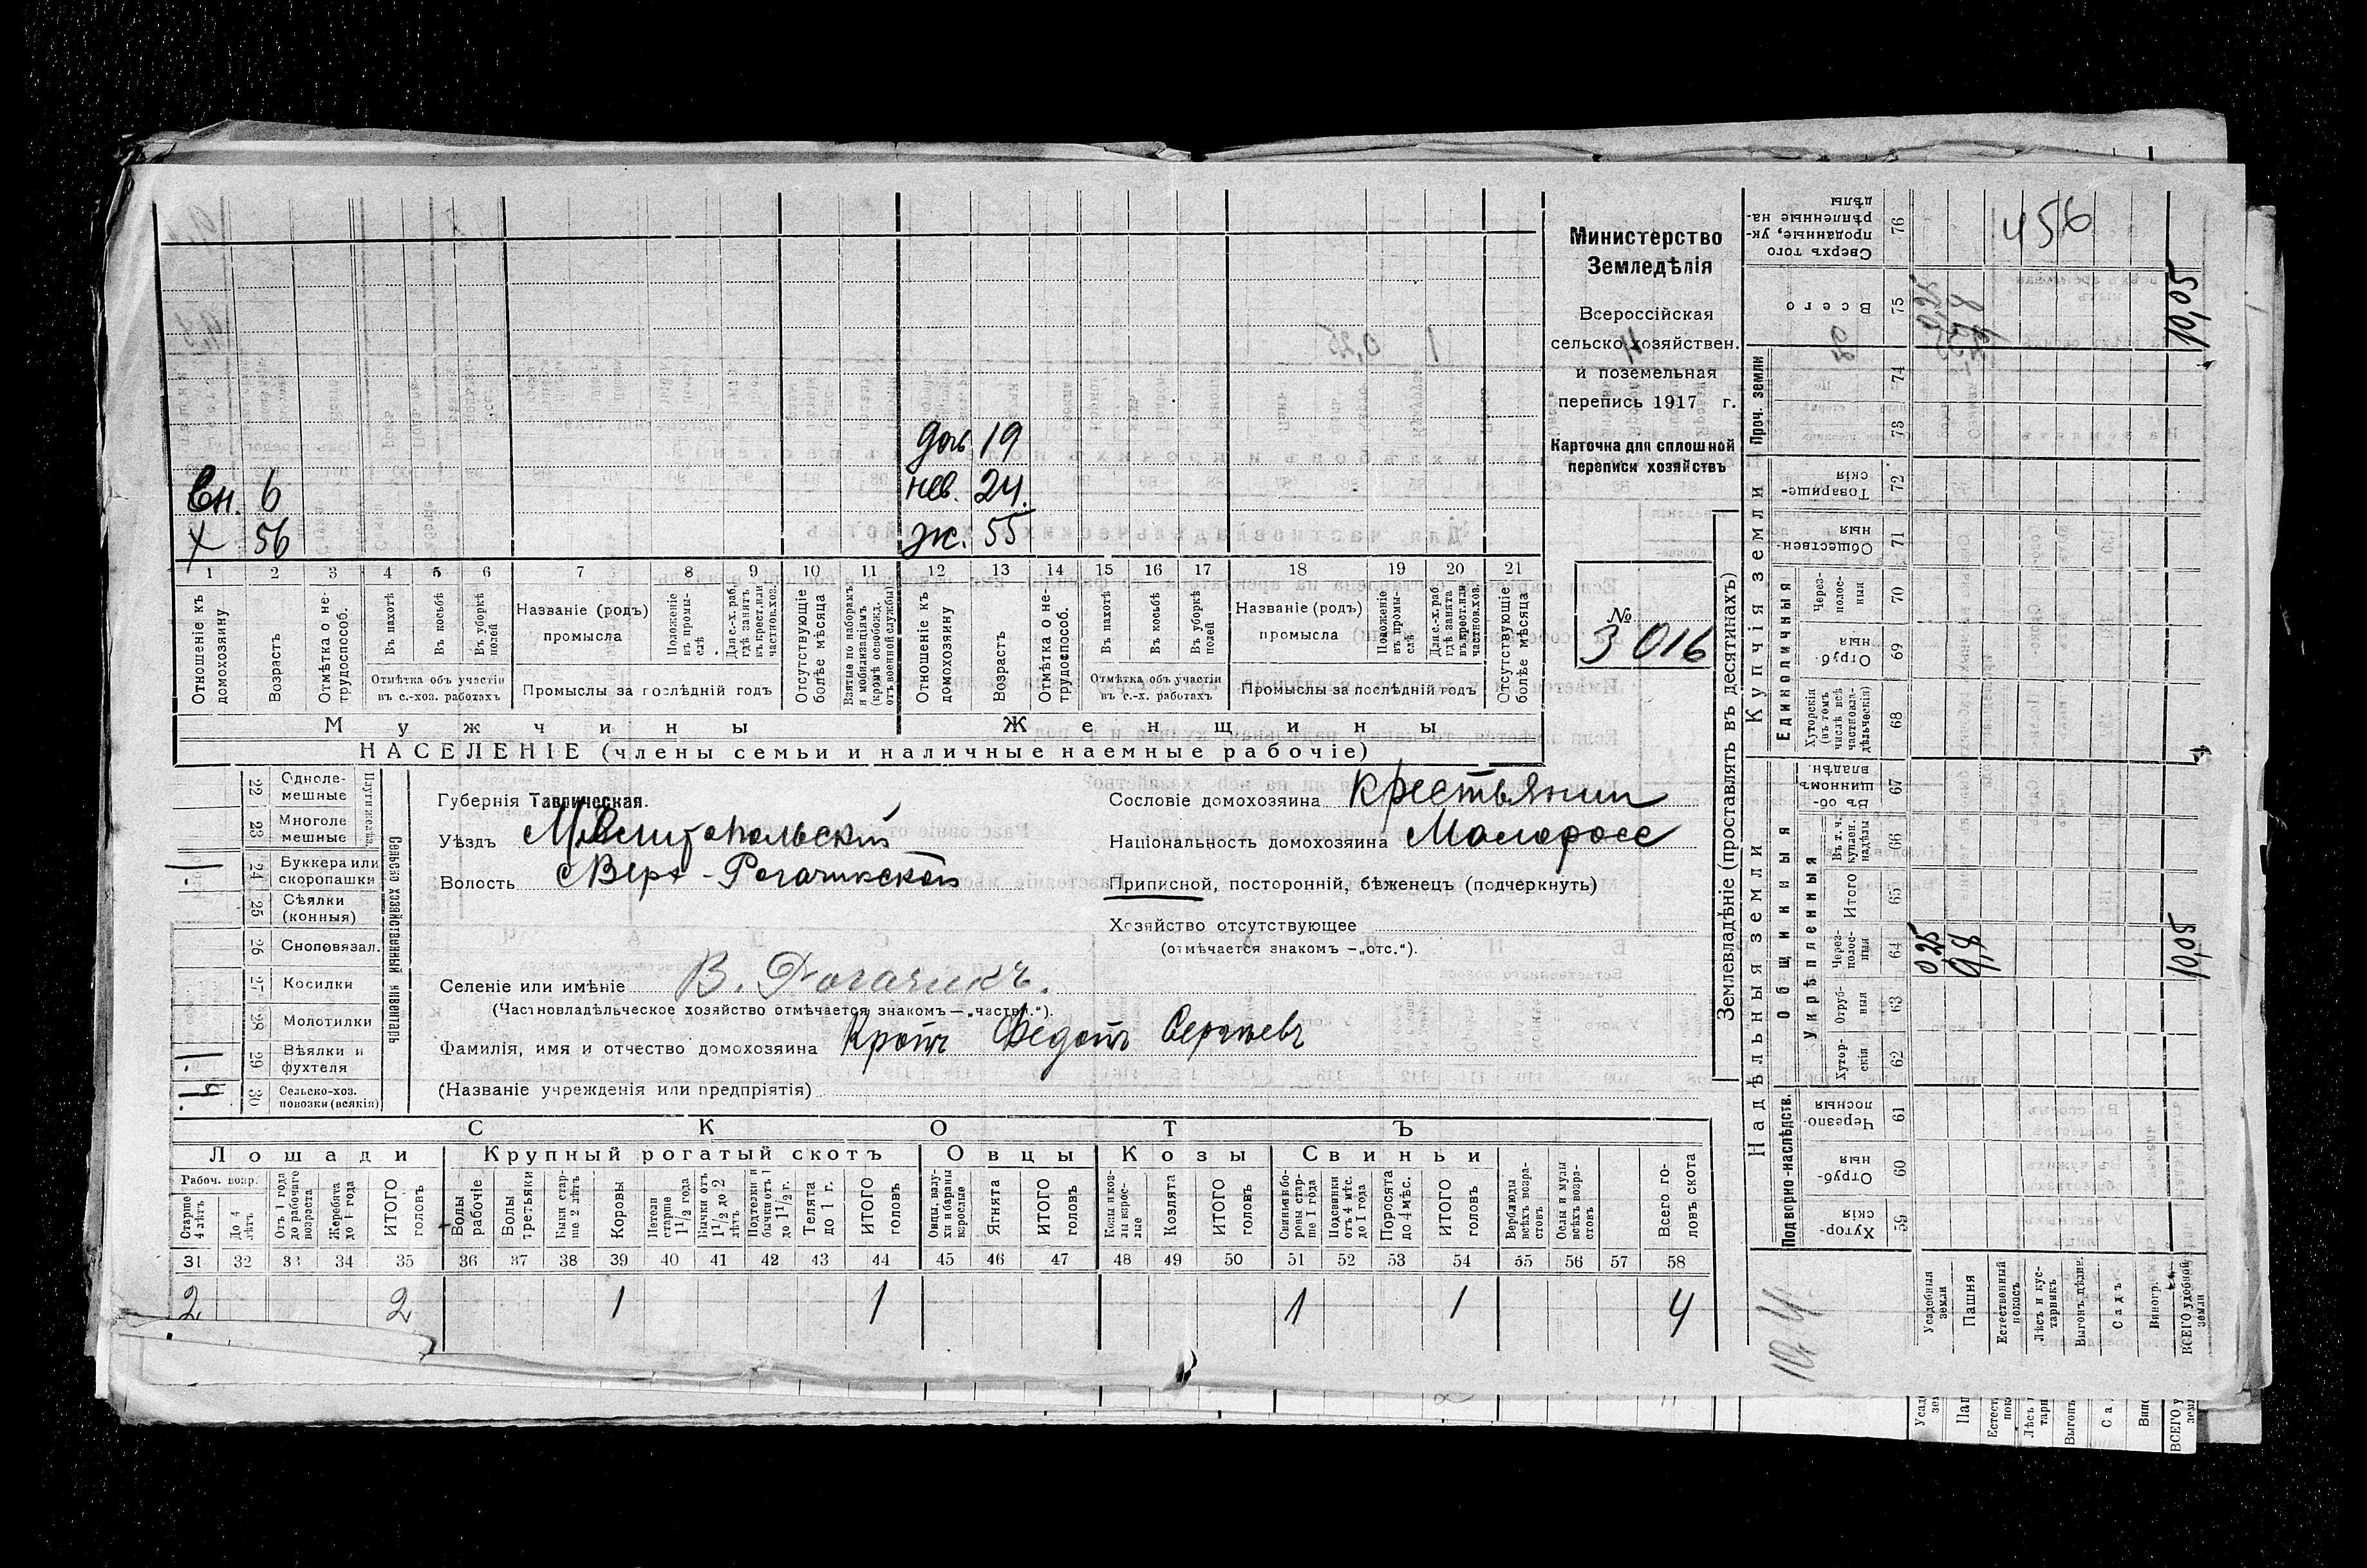 Министерство
Земледѣлія
Всероссійская
сельско-хозяйствен.
и поземельная
перепись 1917 г.
Карточка для сплошной
переписи хозяйствъ
№
3016
456
доч. 19
вн. 6 нев. 24.
х 56 ж. 55
1 2 3 4 5 6 7 8 9 10 11 12 13 14 15 16 17 18 19 20 21
Отношеніе къ домохозяину
Возрастъ
Отмѣтка о нетрудоспособ.
Въ пахотѣ
Въ косьбѣ
Въ уборкѣ полей
Отмѣтка объ участіи въ с.-хоз. работахъ
Названіе (родъ) промысла
Положеніе въ промыслѣ
Для с.-х. раб. гдѣ занятъ въ крест. или частнов. хоз.
Промыслы за послѣдній годъ
Отсутствующіе болѣе мѣсяца
Взятые по наборамъ и мобилизаціямъ (кромѣ освобожд. отъ военной службы)
Отношеніе къ домохозяину
Возрастъ
Отмѣтка о нетрудоспособ.
Въ пахотѣ
Въ косьбѣ
Въ уборкѣ полей
Отмѣтка объ участіи въ с.-х. работахъ
Названіе (родъ) промысла
Положеніе въ промыслѣ
Для с.-х. раб. гдѣ занята въ крест. или частнов. хоз.
Промыслы за послѣдній годъ
Отсутствующіе болѣе мѣсяца
Мужчины Женщины
НАСЕЛЕНІЕ (члены семьи и наличные наемные рабочіе)
Сельско хозяйственный инвентарь
22 Одноле-
мешные
23 Многоле
мешные
24 Буккера или
скоропашки
1
25 Сѣялки
(конныя)
26 Сноповязал.
27 Косилки
28 Молотилки
29 Вѣялки и
фухтеля
1
30 Сельско-хоз.
повозки (всякія)
Губернія Таврическая.
Уѣздъ Мелитопольскій
Волость Верх-Рогачикской
Селеніе или имѣніе В. Рогачикъ.
(Частновладѣльческое хозяйство отмѣчается знакомъ—„частн.“).
Фамилія, имя и отчество домохозяина Кротъ Федотъ Сергѣевъ
(Названіе учрежденія или предпріятія)
Сословіе домохозяина крестьянин
Національность домохозяина Малоросс
Приписной, посторонній, бѣженецъ (подчеркнуть)
Хозяйство отсутствующее
(отмѣчается знакомъ —„отс.“).
СКОТЪ
Лошади Крупный рогатый скотъ Овцы Козы Свиньи
Рабоч. возр.
Старше 4 лѣтъ
До 4 лѣтъ
Отъ 1 года до рабочаго возраста
Жеребята до 1 года
ИТОГО головъ
Волы рабочіе
Волы третьяки
Быки старше 2 лѣтъ
Коровы
Нетели старше 1 1/2 года
Бычки отъ 1 1/2 до 2 лѣтъ
Подтелки и бычки отъ 1 до 1 1/2 г.
Телята до 1 г.
ИТОГО головъ
Овцы, валухи и бараны взрослые
Ягнята
ИТОГО головъ
Козы и козлы взрослые
Козлята
ИТОГО головъ
Свиньи и боровы старше 1 года
Подсвинки отъ 4 мѣс. до 1 года
Поросята до 4 мѣс.
ИТОГО головъ
Верблюды всѣхъ возрастовъ
Ослы и мулы всѣхъ возрастовъ
Всего головъ скота
31 32 33 34 35 36 37 38 39 40 41 42 43 44 45 46 47 48 49 50 51 52 53 54 55 56 57 58
2 2 1 1 1 1 4
Землевладѣніе (проставлять въ десятинахъ)
Надѣльныя земли Купчія земли Проч. земли
Подворно-наслѣдств.
Общинныя
Укрѣпленныя
Единоличныя
Хуторскія 59
Отрубныя 60
Черезполосныя 61
Хуторскія 62
Отрубныя 63
Черезполосныя 64
Итого 65
Въ т. ч. куплен. надѣлы 66
Въ общинномъ владѣн. 67
Хуторскія (въ томъ числѣ всѣ частновладѣльческія) 68
Отрубныя 69
Черезполосныя 70
Общественныя 71
Товарищескія 72
73
74
Всего 75
Сверхъ того проданные, укрѣпленные надѣлы 76
Усадебныя земли
Пашня
Естественный покосъ
Лѣсъ и кустарникъ
Выгонъ
Садъ
Виногр.
ВСЕГО удобной земли
0,25
9,8
10,05
10,05